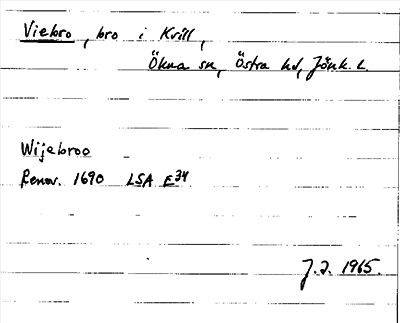 Viebro, bro i Krill,
Ökna sn, Östra hd, Jönk. L.
Wijebroo
Renov. 1690 LSA E34
J.J. 1965.